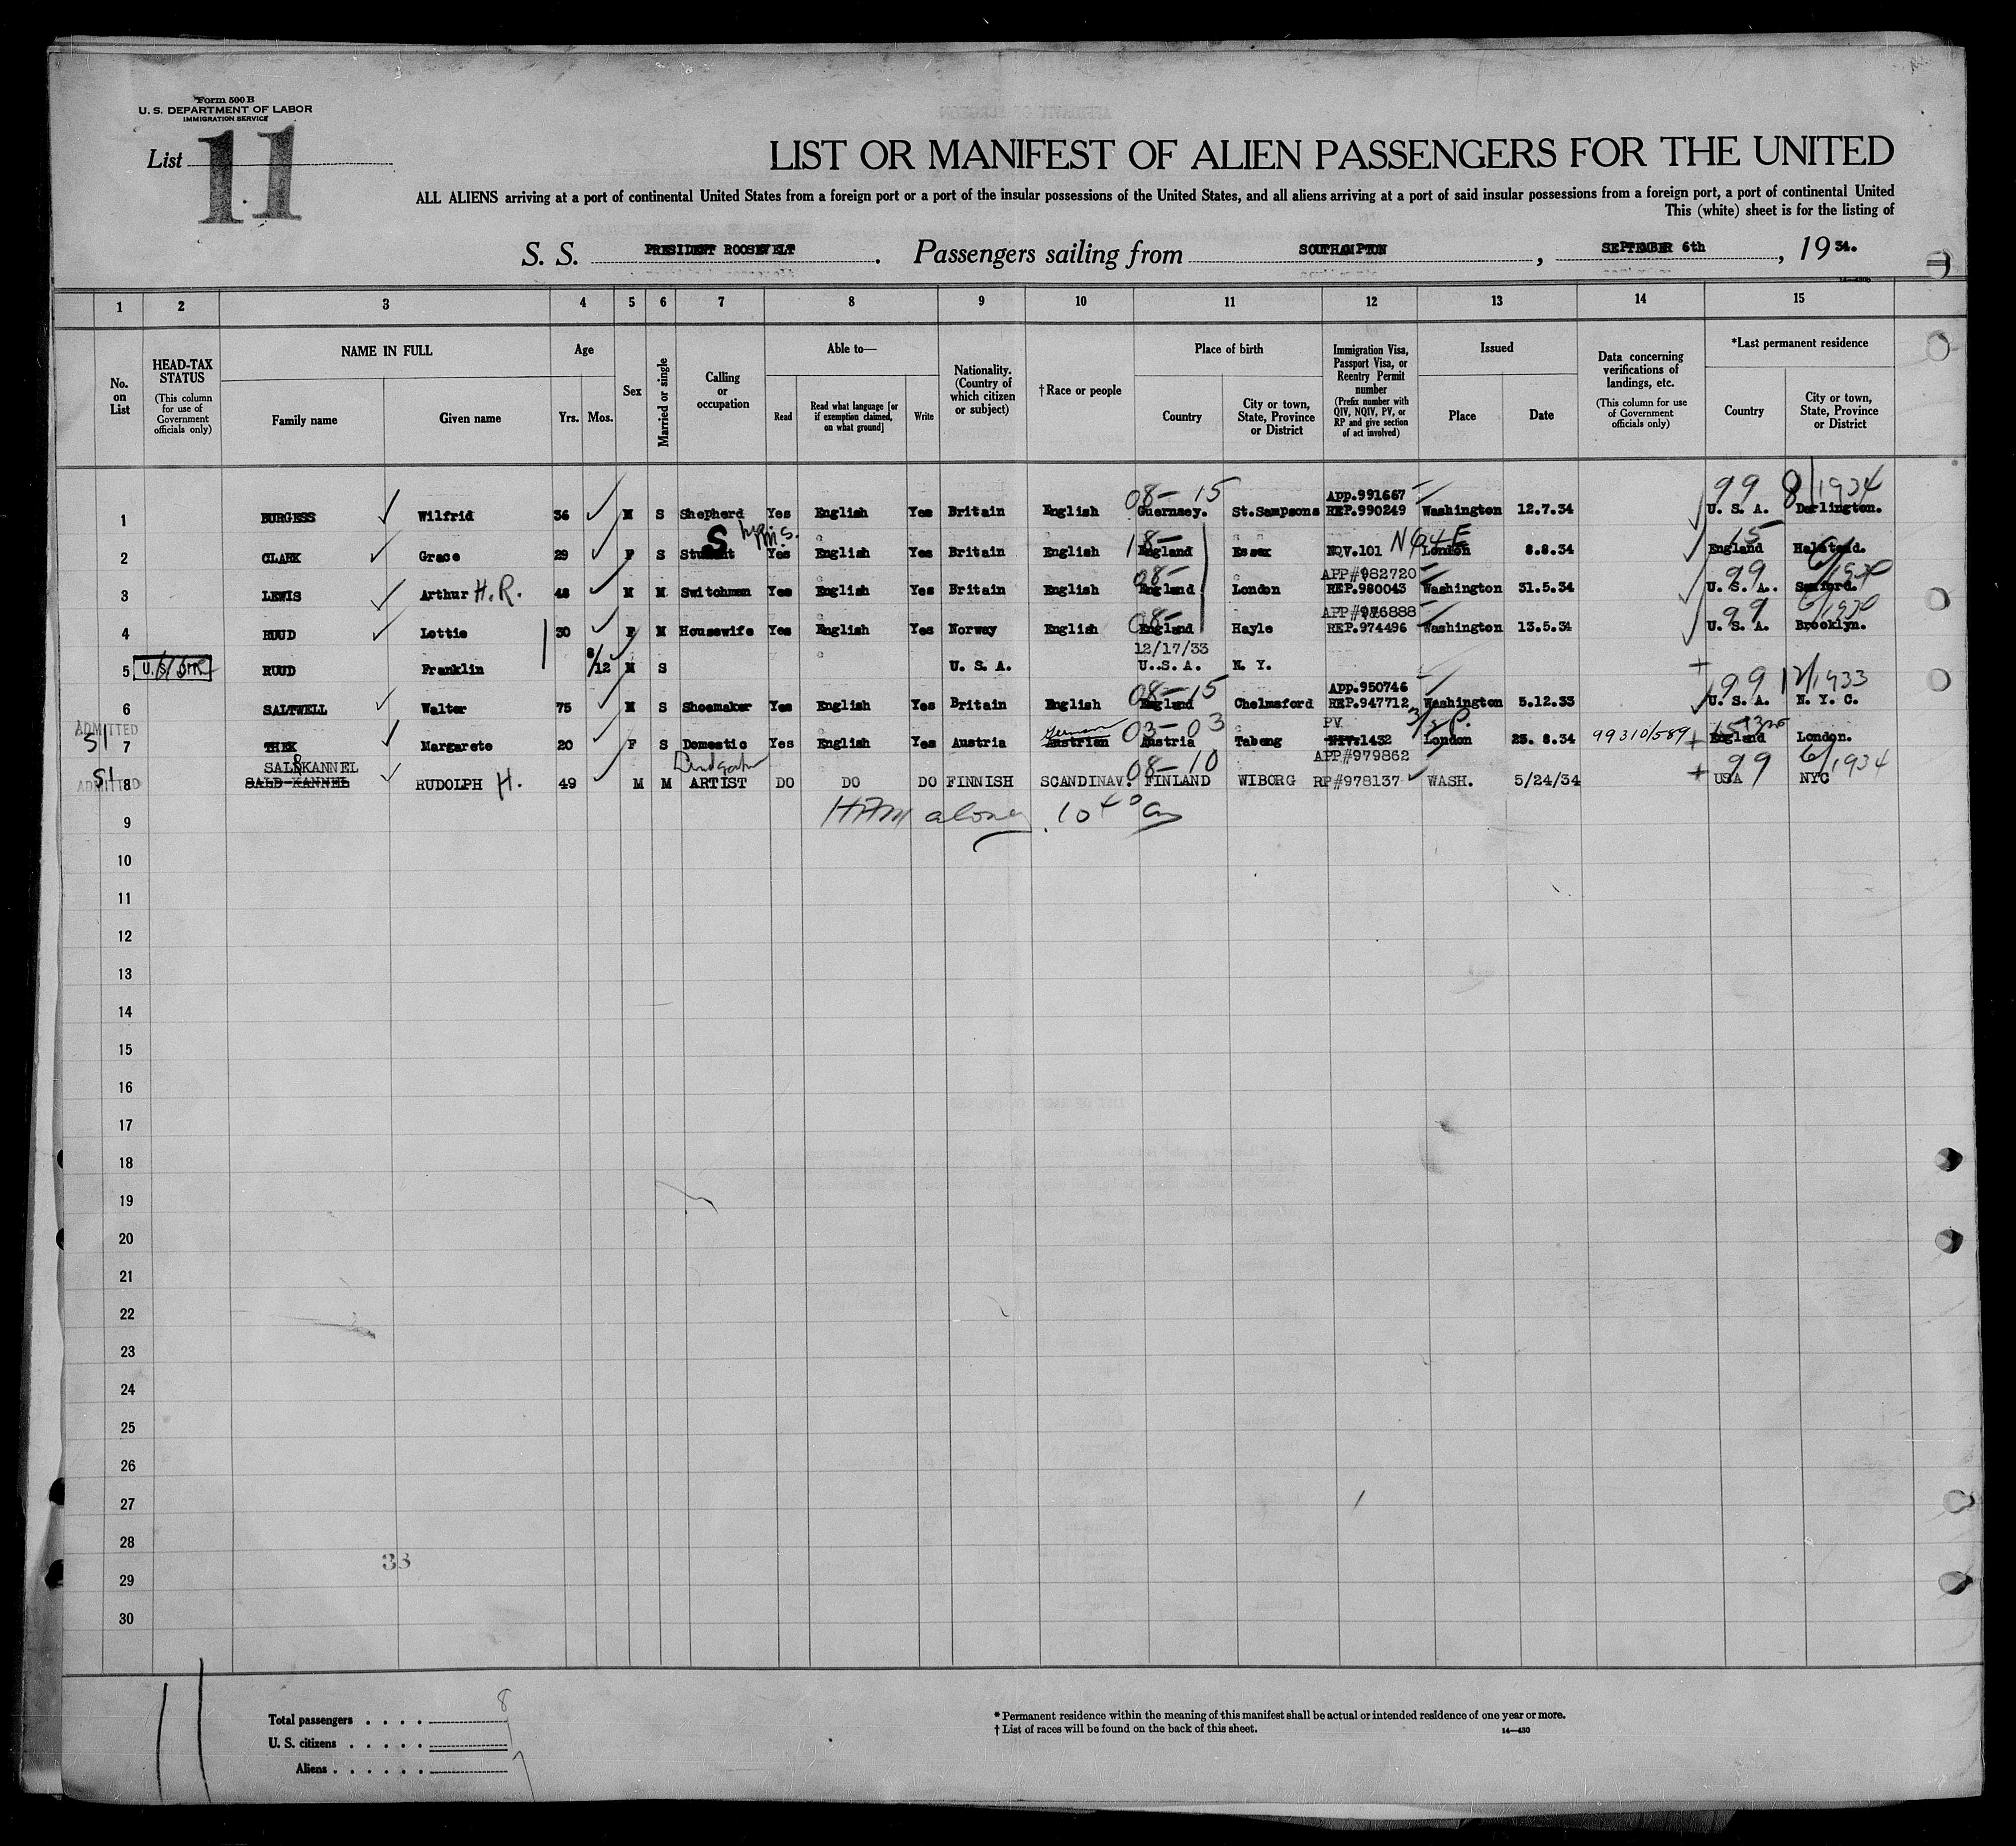 Form 500 B
U. S. DEPARTMENT OF LABOR
IMMIGRATION SERVICE
List 11
LIST OR MANIFEST OF ALIEN PASSENGERS FOR THE UNITED
ALL ALIENS arriving at a port of continental United States from a foreign port or a port of the insular possessions of the United States, and all aliens arriving at a port of said insular possessions from a foreign port, a port of continental United
This (white) sheet is for the listing of
S. S. PRESIDENT ROOSEVELT. Passengers sailing from SOUTHAMPTON, SEPTEMBER 6th, 19 34.
1 2 3 4 5 6 7 8 9 10 11 12 13 14 15
No. on List
HEAD-TAX STATUS (This column for use of Government officials only)
NAME IN FULL
Family name Given name
Age
Yrs. Mos.
Sex
Married or single
Calling or occupation
Able to—
Read Read what language [or if exemption claimed, on what ground] Write
Nationality. (Country of which citizen or subject)
† Race or people
Place of birth
Country City or town, State, Province or District
Immigration Visa, Passport Visa, or Reentry Permit number (Prefix number with QIV, NQIV, PV, or RP and give section of act involved)
Issued
Place Date
Data concerning verifications of landings, etc. (This column for use of Government officials only)
*Last permanent residence
Country City or town, State, Province or District
08-15 App.991667 99 8/1934
1 BURGESS Wilfrid 36 M S Shepherd Yes English Yes Britain English Guernsey. St.Sampsons REP.990249 Washington 12.7.34 U. S. A. Darlington.
S 18- 15
2 CLARK Grace 29 F S Student Yes English Yes Britain English England Essex NQV.101 N64E London 8.8.34 England Halstead.
08- APP#982720 99 6/1930
3 LEWIS Arthur H.R. 48 M M Switchman Yes English Yes Britain English England London REP.980043 Washington 31.5.34 U. S. A..
08- APP#976888 99 6/1930
4 RUUD Lottie 30 F M Housewife Yes English Yes Norway English England Hayle REP.974496 Washington 13.5.34 U. S. A. Brooklyn.
12/17/33
5 RUUD Franklin 8/12 M S U. S. A. U..S. A. N. Y.
08-15 App.950746 99 12/1933
6 SALTWELL Walter 75 M S Shoemaker Yes English Yes Britain English England Chelmsford REP.947712 Washington 5.12.33 U. S. A. N. Y. C.
ADMITTED German 03-03 PV
SI 7 THEK Margarete 20 F S Domestic Yes English Yes Austria Austrian Austria Tabeng NIV.1432 London 23. 8.34 99310/589 England London.
SALBKANNEL 08-10 APP#979862 99 6/1934
SI ADMITTED 8 SALB-KANNEL RUDOLPH H. 49 M M ARTIST DO DO DO FINNISH SCANDINAV. FINLAND WIBORG RP#978137 WASH. 5/24/34 USA NYC
9 alone
10
11
12
13
14
15
16
17
18
19
20
21
22
23
24
25
26
27
28
38
29
30
11
Total passengers . . . . 8
U. S. citizens . . . . .
Aliens . . . . . .
* Permanent residence within the meaning of this manifest shall be actual or intended residence of one year or more.
† List of races will be found on the back of this sheet. 14—430